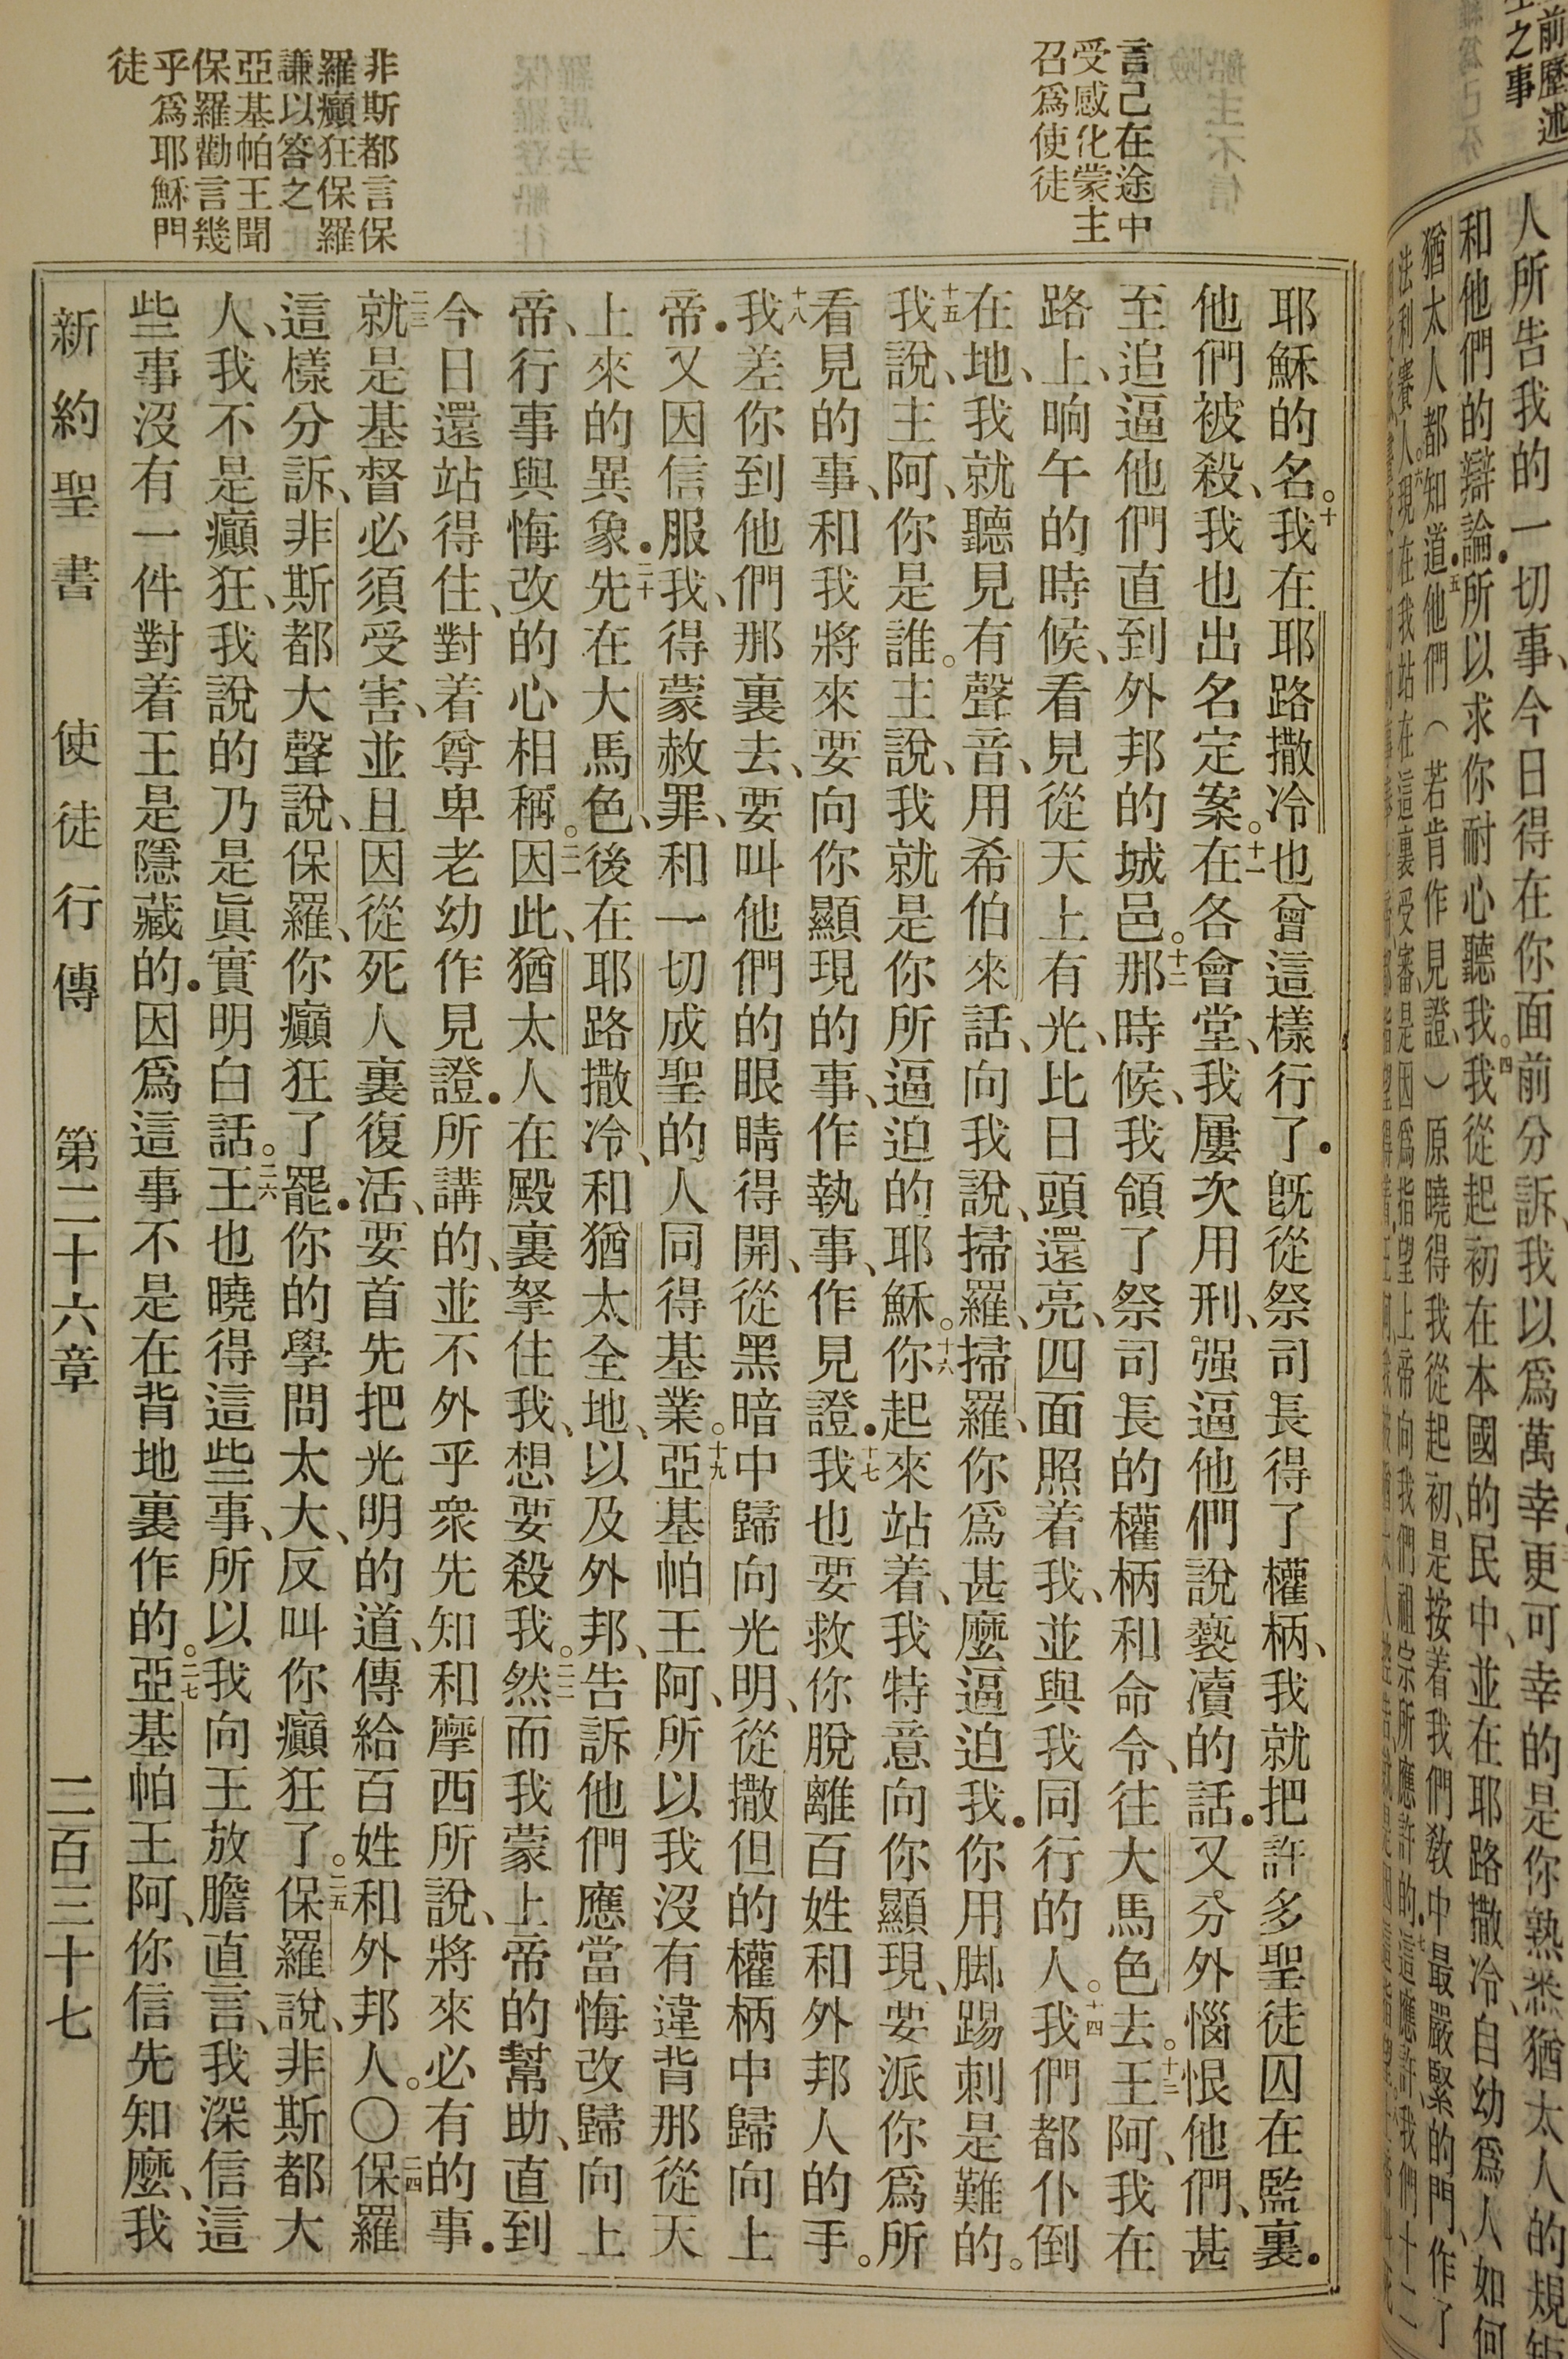 前歷述
之事
人所告我的一切事、今日得在你面前分訴、我以爲萬幸更可幸的是你熟悉猶太人的規矩
和他們的辯論●所以求你耐心聽我。四我從起初在本國的民中、並在耶路撒冷、自幼爲人如何
猶太人都知道●五他們（若肯作見證、）原曉得我從起初、是按着我們教中最嚴緊的門、作了
法利賽人。六現在我站在這裏受審是因爲指望上帝向我們祖宗所應許的●七這應許、我們十二
言己在途中
受感化蒙主
召爲使徒
非斯都言保
羅癲狂保羅
謙以答之
亞基帕王聞
保羅勸言幾
乎爲耶穌門
徒
耶穌的名。十我在耶路撒冷也曾這樣行了●旣從祭司長得了權柄、我就把許多聖徒囚在監裏●
他們被殺、我也出名定案。十一在各會堂、我屢次用刑、强逼他們說褻瀆的話●又分外惱恨他們、甚
至追逼他們直到外邦的城邑。十二那時候、我領了祭司長的權柄和命令、往大馬色去。十三王阿、我在
路上、晌午的時候、看見從天上有光、比日頭還亮、四面照着我、並與我同行的人。十四我們都仆倒
在地、我就聽見有聲音、用希伯來話、向我說、掃羅、掃羅、你爲甚麼逼迫我●你用脚踢刺是難的。
十五我說、主阿、你是誰。主說、我就是你所逼迫的耶穌。十六你起來站着、我特意向你顯現、要派你爲所
看見的事、和我將來要向你顯現的事、作執事、作見證●十七我也要救你脫離百姓和外邦人的手。
十八我差你到他們那裏去、要叫他們的眼睛得開、從黑暗中歸向光明、從撒但的權柄中歸向上
帝●又因信服我、得蒙赦罪、和一切成聖的人同得基業。十九亞基帕王阿、所以我沒有違背那從天
上來的異象●二十先在大馬色、後在耶路撒冷、和猶太全地、以及外邦、告訴他們應當悔改歸向上
帝、行事與悔改的心相稱。二一因此、猶太人在殿裏拏住我、想要殺我。二二然而我蒙上帝的幫助、直到
今日還站得住、對着尊卑老幼作見證●所講的、並不外乎衆先知和摩西所說、將來必有的事●
二三就是基督必須受害、並且因從死人裏復活、要首先把光明的道、傳給百姓和外邦人。〇二四保羅
這樣分訴、非斯都大聲說、保羅、你癲狂了罷●你的學問太大、反叫你癲狂了。二五保羅說、非斯都大
人、我不是癲狂、我說的乃是眞實明白話。二六王也曉得這些事、所以我向王放膽直言、我深信這
些事沒有一件對着王是隱藏的●因爲這事不是在背地裏作的。二七亞基帕王阿、你信先知麼、我
新約聖書　使徒行傳　第二十六章　二百三十七